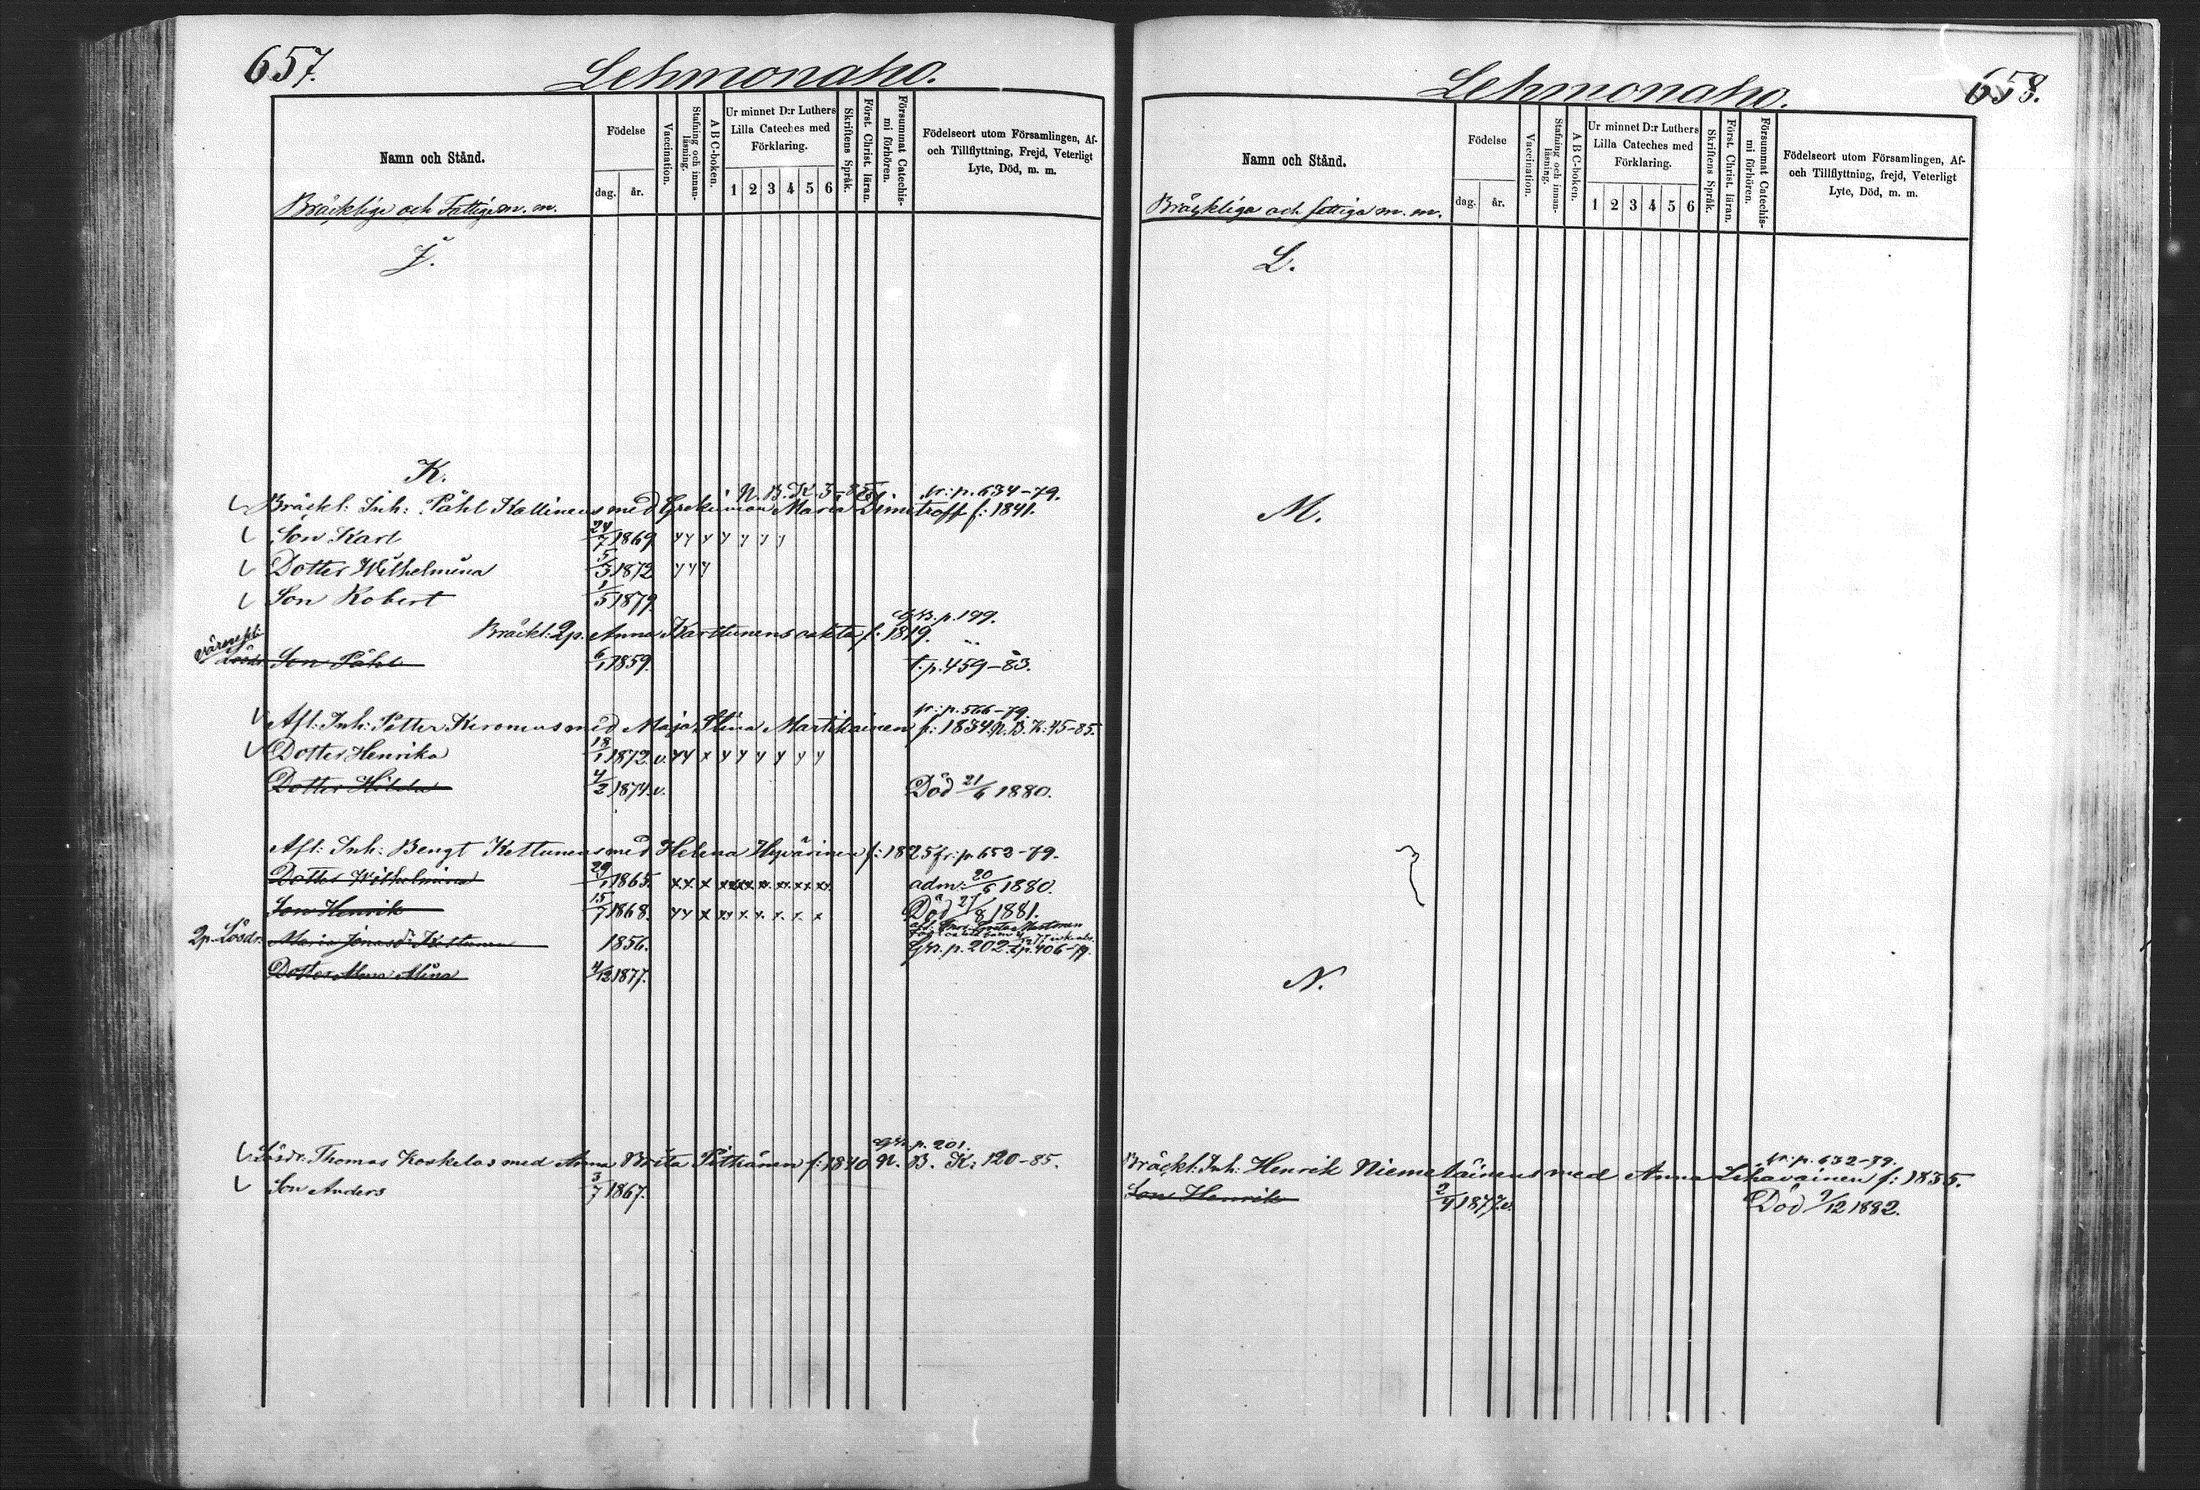 657.
Lehmonaho.
Namn och Stånd.
Födelse
dag. år.
Vaccination.
Stafning och innanläsning.
A B C-boken.
Ur minnet D:r Luthers Lilla Cateches med Förklaring.
1 2 3 4 5 6
Skriftens Språk.
Först. Christ. läran.
Försummat Catechismi förhören.
Födelseort utom Församlingen, Af- och Tillflyttning, Frejd, Veterligt Lyte, Död, m. m.
Bräcklige och Fattige m. m.
J.
K.
N. B. K. 3-85 fr: p. 634-79.
Bräckl: Inh: Påhl Kallinens med Grekinnan Maria Dimitroff f: 1841.
Son Karl 24/7 1869 y y y y y y y
Dotter Wilhelmina 5/3 1872 y y y
Son Robert 1/5 1879
p. 199.
Bräckl: Qp. Anna Karttunens oäkta f. 1819.
Lösdr. Son Påhl 6/1 1859. t. p. 459-83.
fr: p. 566-79.
Afl: Inh: Petter Keronens med Maja Stina Martikainen f: 1834. N. B. K: 45-85.
Dotter Henrika 18/1 1872. v. y y x y y y y y y
Dotter Hilda 4/2 1874. v. Död 21/6 1880.
Afl: Inh: Bengt Kettunens med Helena Hyvärinen f: 1825 fr: p 653-79.
Dotter Wilhelmina 29/1 1865. x x x xx xx xx xx xx xx adm: 20/6 1880.
Son Henrik 15/7 1868. y y x x x x x x x Död 27/8 1881.
Qp. Lösdr. Maria Jonasdr Kettunen 1856. p. 202. t p. 406-79.
Dotter Alma Alina 4/12 1877.
p. 201.
Lösdr. Thomas Koskelas med Anna Brita Pitkänen f: 1840 N. B. K: 120-85.
Son Anders 3/7 1867.
658.
Lehmonaho.
Namn och Stånd.
Födelse
dag. år.
Vaccination.
Stafning och innanläsning.
A B C-boken.
Ur minnet D:r Luthers Lilla Cateches med Förklaring.
1 2 3 4 5 6
Skriftens Språk.
Först. Christ. läran.
Försummat Catechismi förhören.
Födelseort utom Församlingen, Af- och Tillflyttning, frejd, Veterligt Lyte, Död, m. m.
Bräckliga och fattiga m. m.
L.
M.
N.
fr: p. 632-79.
Bräckl. Inh: Henrik Niemeläinens med Anna Likavainen f: 1835.
Son Henrik 2/4 1877. v. Död 9/12 1882.